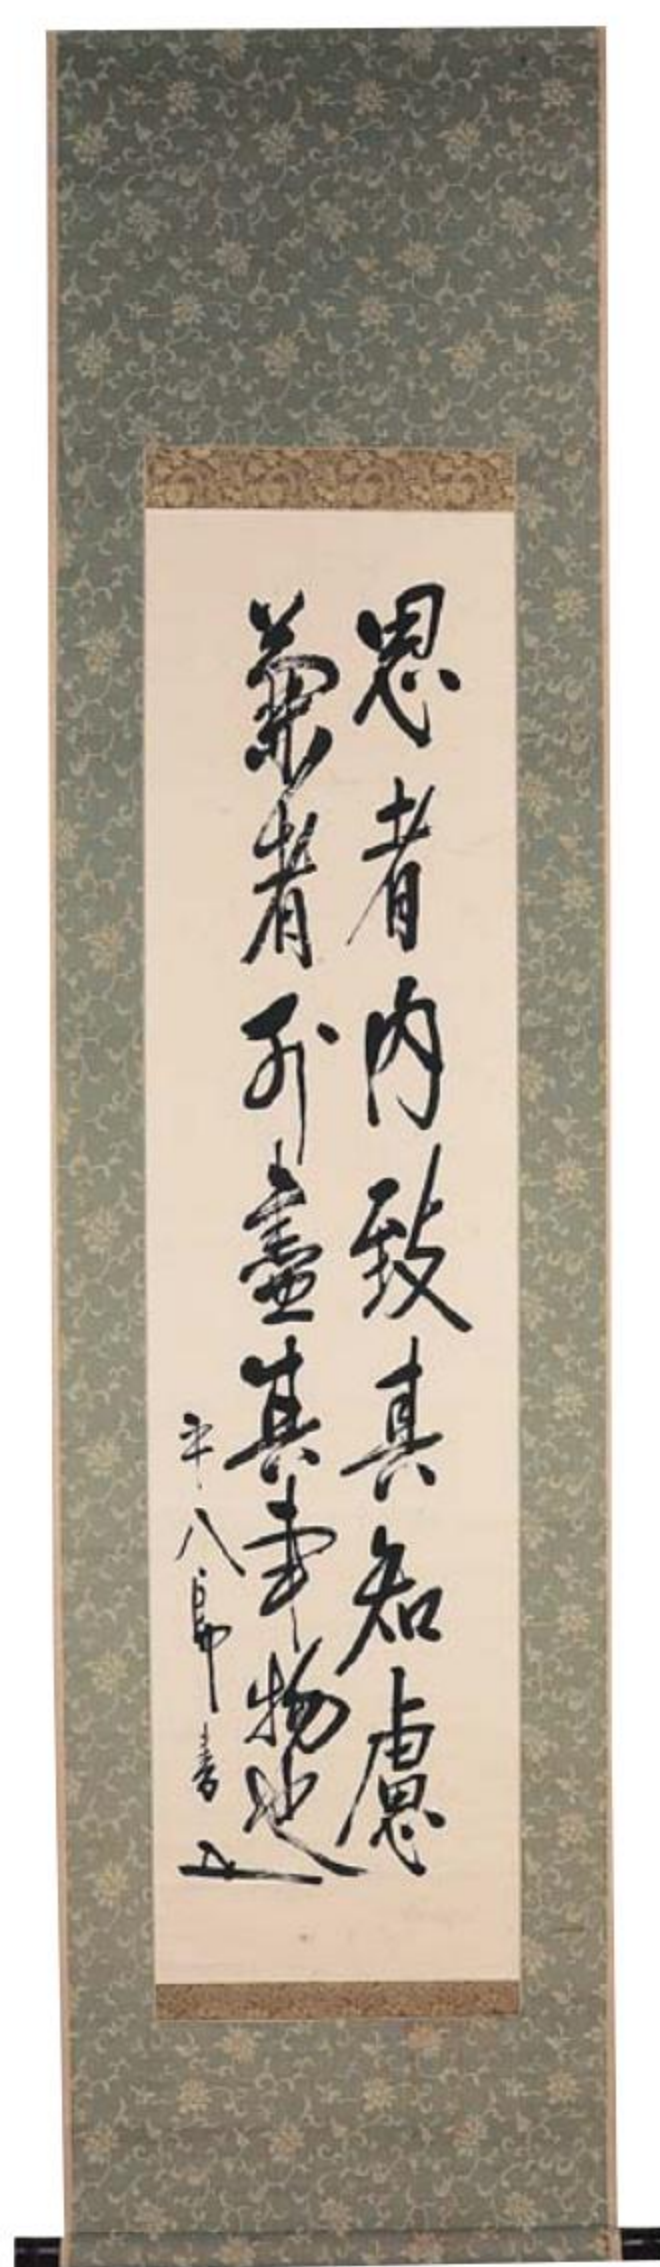 思者内致真知慮
者外盡其事物也
平八郎書